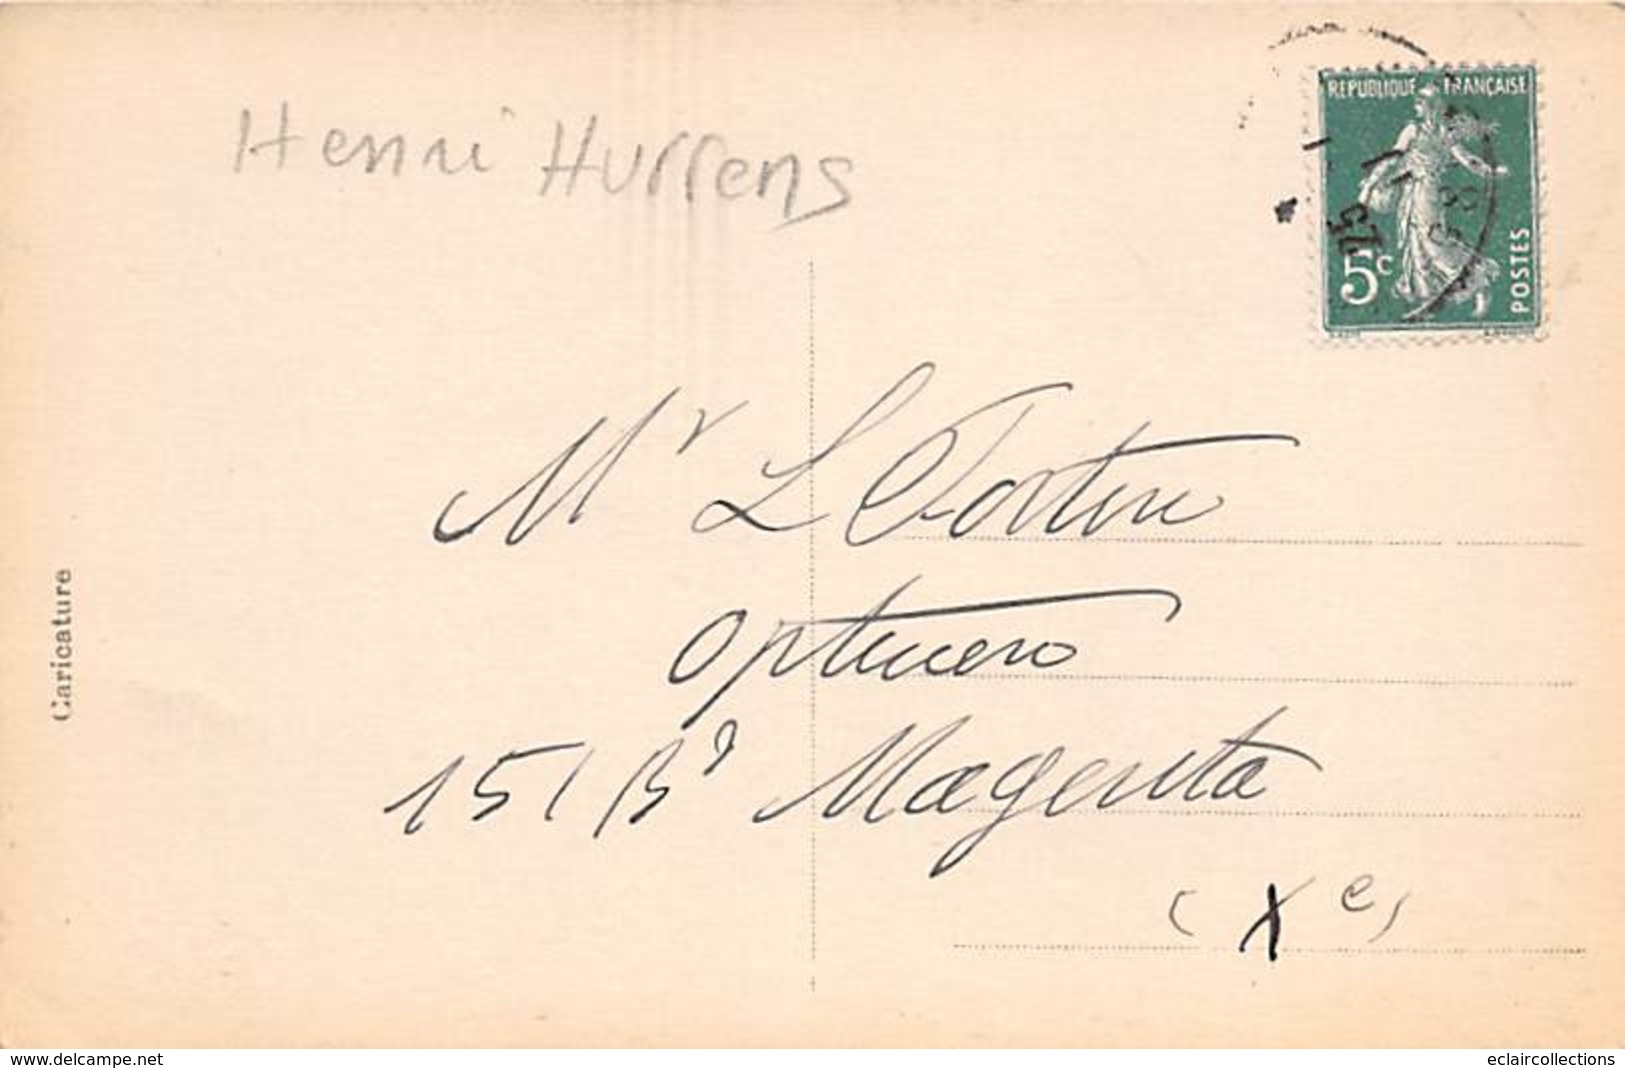 REPUBLIQUE FRANÇAISE
5c
POSTES
25
Henri Hurrens
Mr L Fortin
151 Bd Magenta
(Xe)
Caricature
www.delcampe.net
eclaircollections